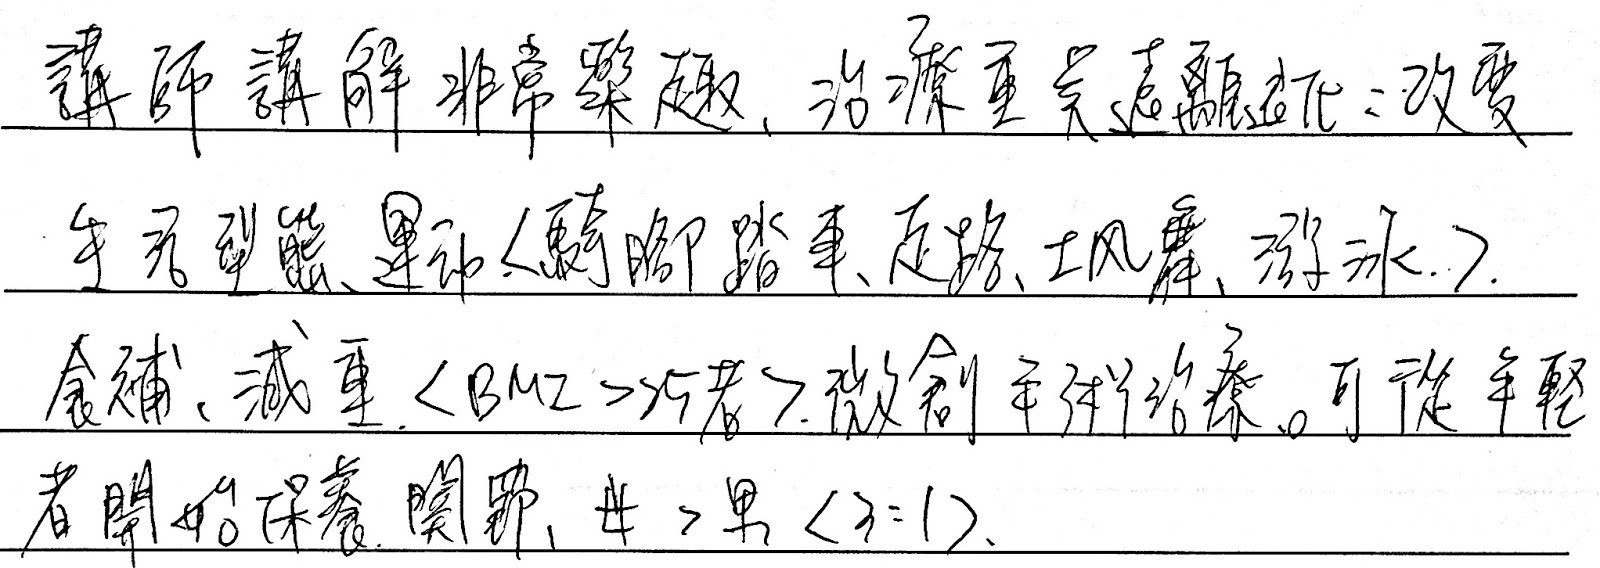 講師講解非常樂趣、治療重點遠離退化:改變
生活型態、運動<騎腳踏車、走路、土风舞、游泳..>.
食補、減重.<BMI>35者>.微創手術治療。可從年輕
者開始保養.關節、 > 果<3:1>.